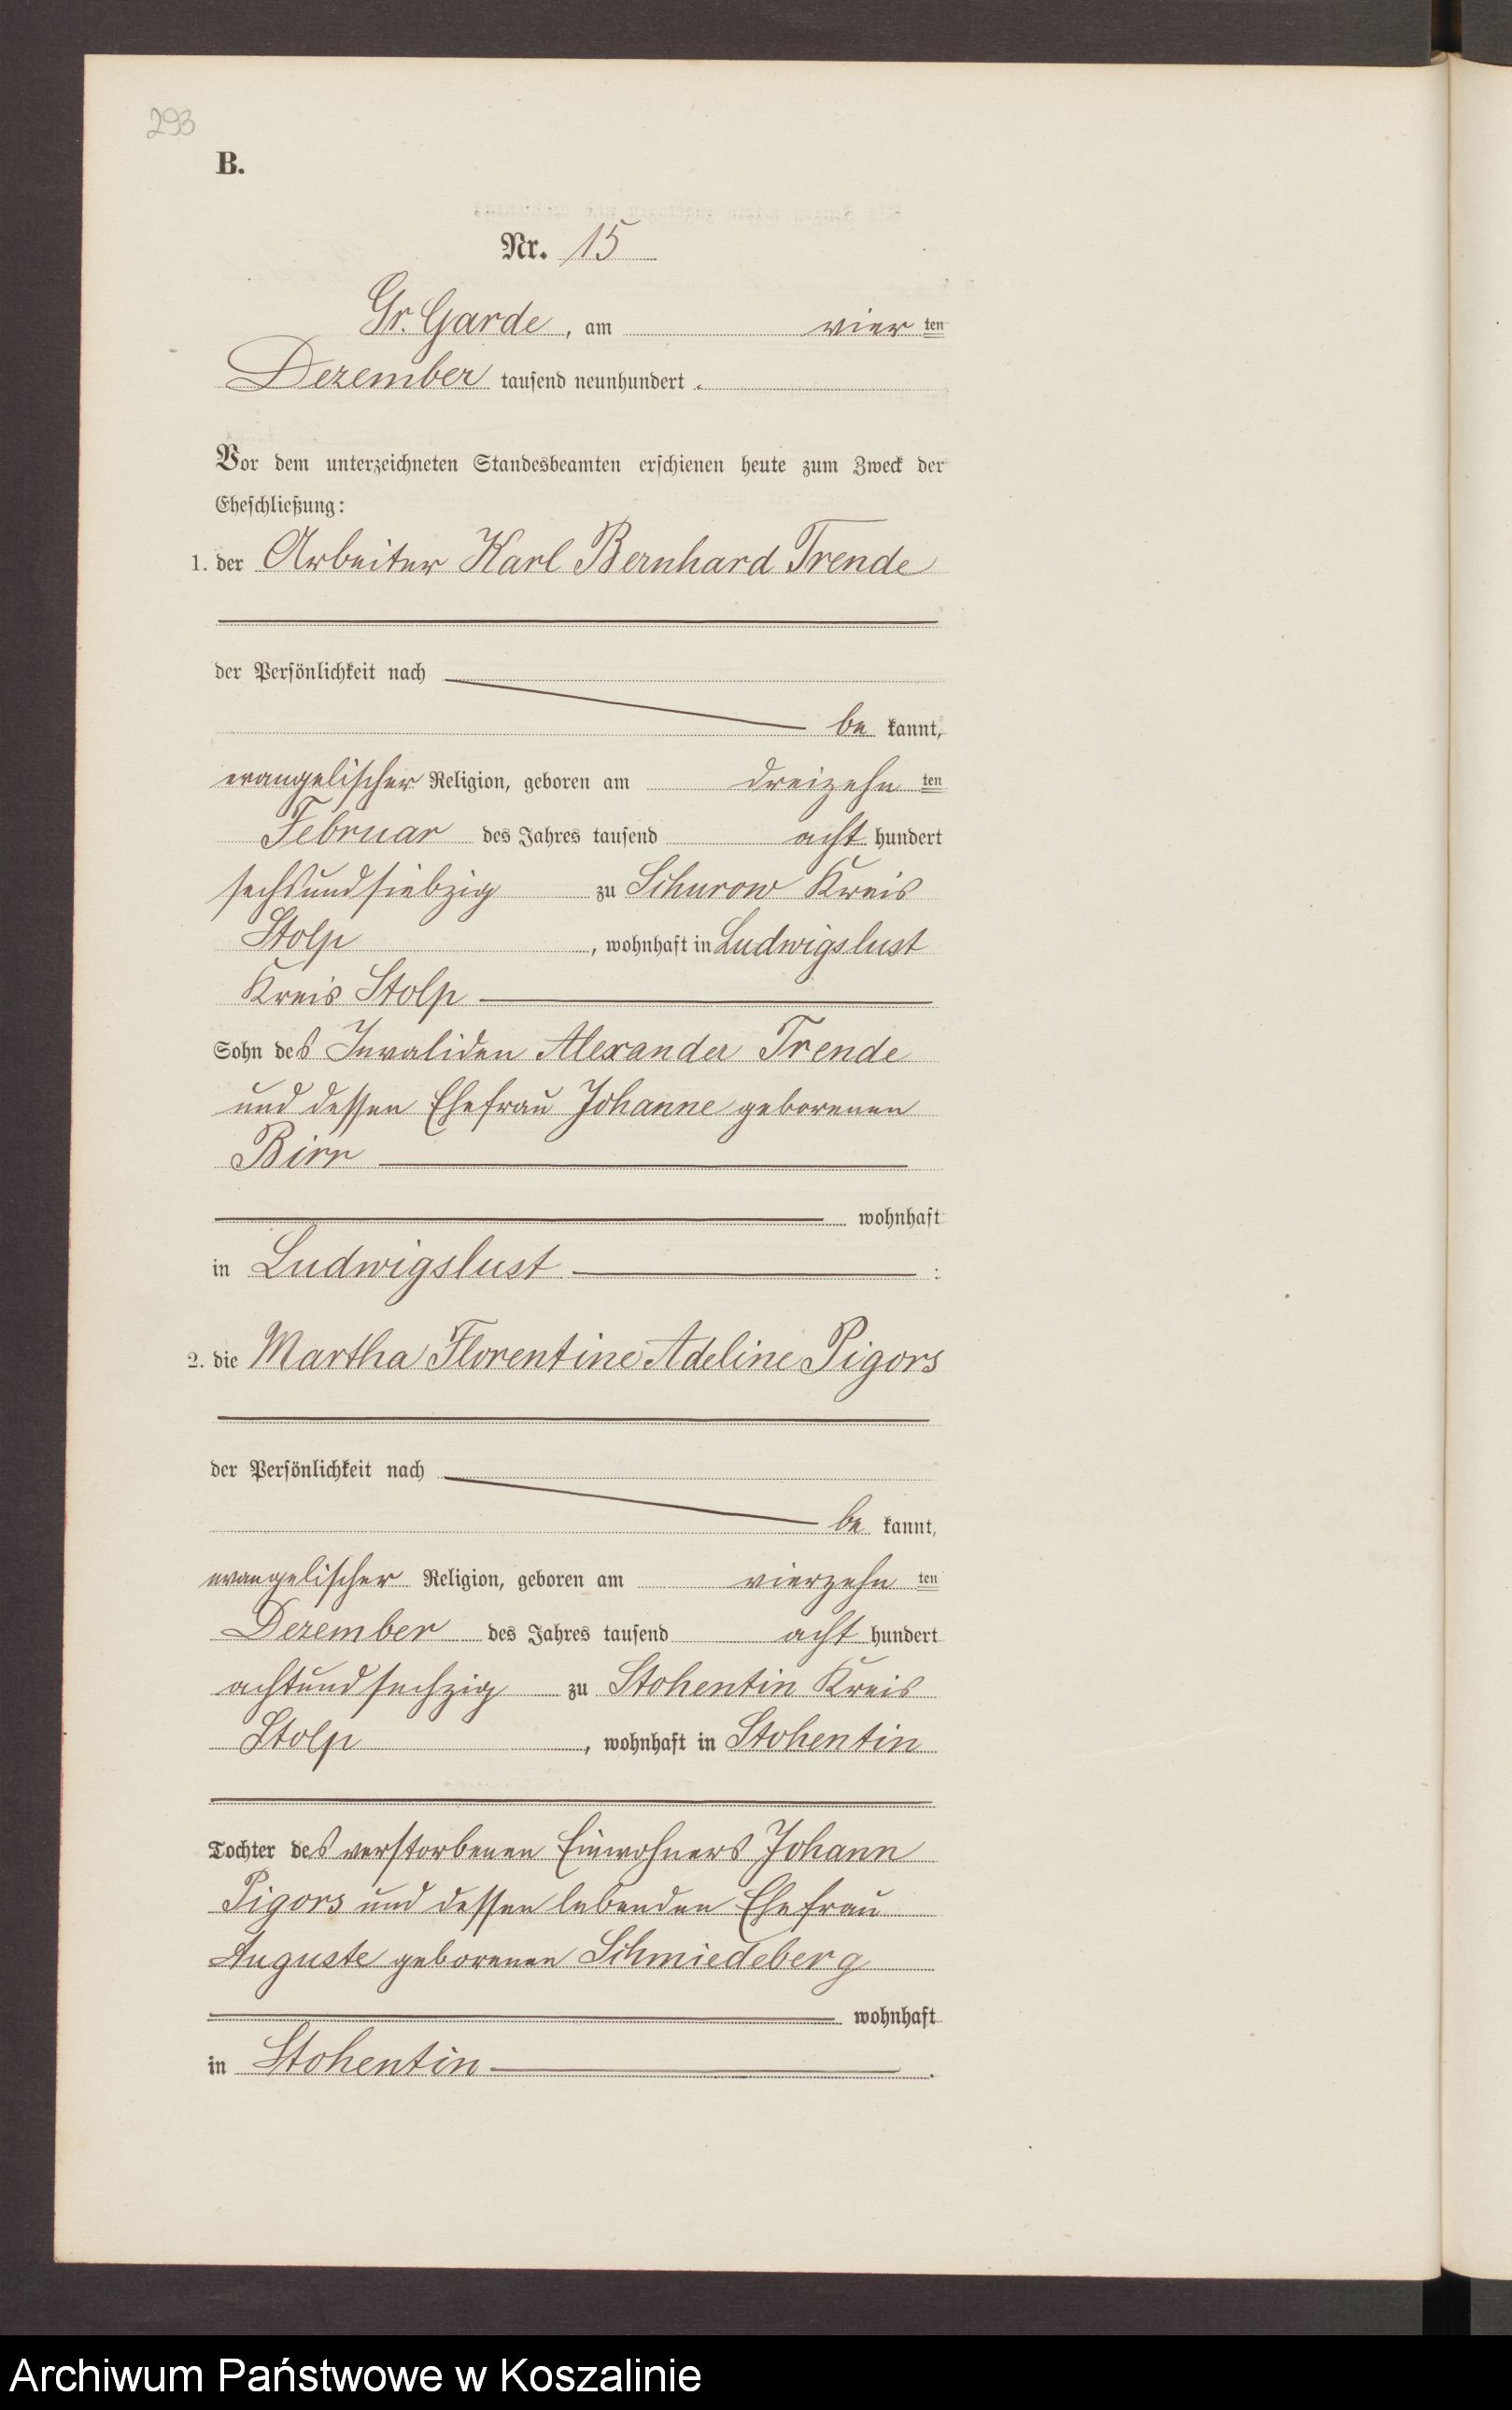 293
B.
Nr. 15
Gr. Garde, am vier ten
Dezember tausend neunhundert.
Vor dem unterzeichneten Standesbeamten erschienen heute zum Zweck der
Eheschließung:
1. der Arbeiter Karl Bernhard Trende
der Persönlichkeit nach
be kannt,
evangelischer Religion, geboren am dreizehn ten
Februar des Jahres tausend acht hundert
sechsundsiebzig zu Schurow Kreis
Stolp, wohnhaft in Ludwigslust
Kreis Stolp
Sohn des Invaliden Alexander Trende
und dessen Ehefrau Johanne geborenen
Birr
wohnhaft
in Ludwigslust :
2. die Martha Florentine Adeline Pigors
der Persönlichkeit nach
be kannt,
evangelischer Religion, geboren am vierzehn ten
Dezember des Jahres tausend acht hundert
achtundsechzig zu Stohentin Kreis
Stolp, wohnhaft in Stohentin
Tochter des verstorbenen Einwohners Johann
Pigors und dessen lebenden Ehefrau
Auguste geborenen Schmiedeberg
wohnhaft
in Stohentin.
Archiwum Państwowe w Koszalinie